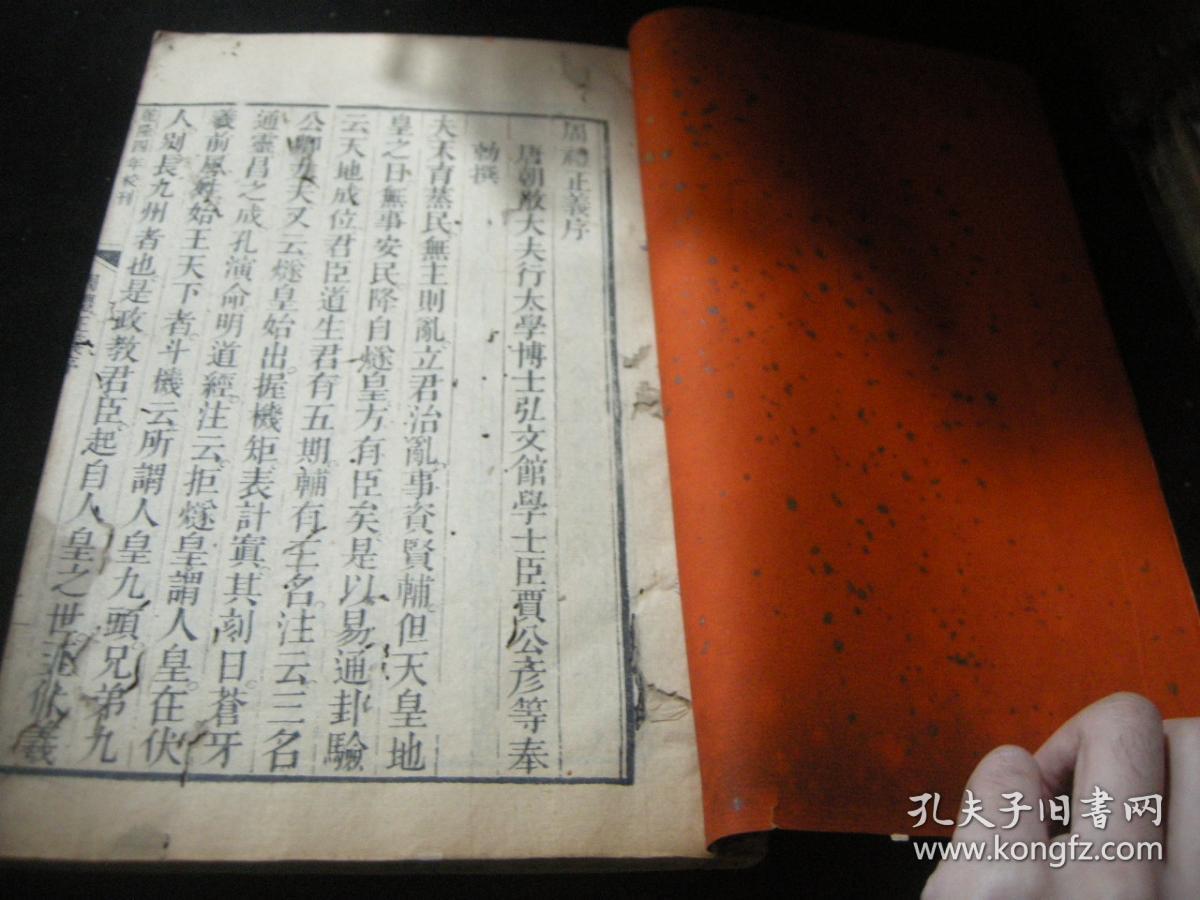 周禮正義序
唐朝散大夫行太學博士弘文館學士臣賈公彥等奉
勅撰
夫天育蒸民無主則亂立君治亂事資賢輔但天皇地
皇之日無事安民降自燧皇方有臣矣是以易通卦驗
云天地成位君臣道生君有五期輔有三名注云三名
公卿大夫又云燧皇始出握機矩表計寘其刻曰蒼牙
通靈昌之成孔演命明道經注云拒燧皇謂人皇在伏
羲前風姓始王天下者斗機云所謂人皇九頭兄弟九
人別長九州者也是政教君臣起自人皇之世至伏羲
乾隆四年校刊
孔夫子旧書网
www.kongfz.com